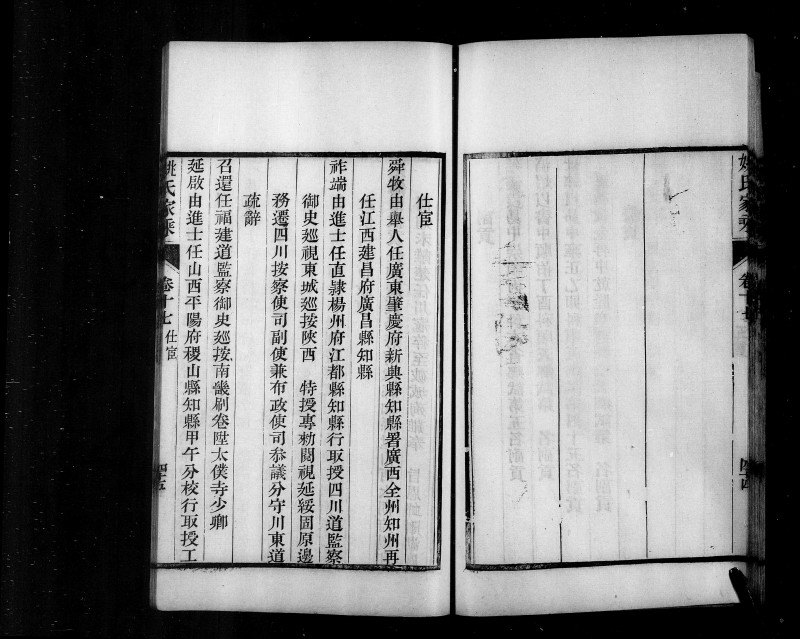 姚氏家乘
卷十七
仕宦
舜牧由舉人任廣東肇慶府新興縣知縣署廣西全州知州再
任江西建昌府廣昌縣知縣
祚端由進士任直隸楊州府江都縣知縣行取授四川道監察
御史廵視東城廵按陝西 特授專勑閱視延綏固原邊
務遷四川按察使司副使兼布政使司叅議分守川東道
疏辭
召還任福建道監察御史廵按南畿刷卷陞太僕寺少卿
延啟由進士任山西平陽府稷山縣知縣甲午分校行取授工
姚氏家乘
卷十七 仕宦